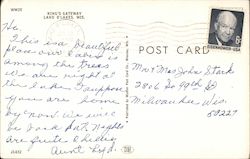 WW25
KING'S GATEWAY
LAND O'LAKES, WIS.
Hi,
This is a beautiful
place our cabin is
among the trees
we are right at
the lake. Suppose
you are home
by now. We will
be back Sat. Nights
are quite chilly
Aunt
POST CARD
EISENHOWER·USA
Mr & Mrs John Stark
2806 So 49th St
Milwaukee Wis.
53219